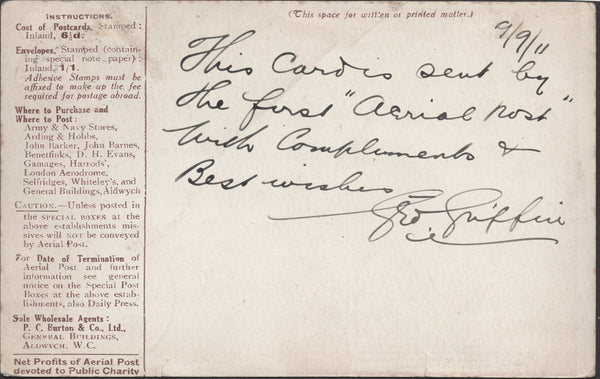 INSTRUCTIONS.
Cost of Postcards, Stamped :
Inland, 6½d.
Envelopes, Stamped (contain-
ing special note paper) :
Inland, 1/1.
Adhesive Stamps must be
affixed to make up the fee
required for postage abroad.
Where to Purchase and
Where to Post :
Army & Navy Stores,
Arding & Hobbs,
John Barker, John Barnes,
Benetfinks, D. H. Evans,
Gamages, Harrods',
London Aerodrome,
Selfridges, Whiteley's, and
General Buildings, Aldwych
CAUTION.—Unless posted in
the SPECIAL BOXES at the
above establishments mis-
sives will NOT be conveyed
by Aerial Post.
For Date of Termination of
Aerial Post and further
information see general
notice on the Special Post
Boxes at the above estab-
lishments, also Daily Press.
Sole Wholesale Agents :
P. C. Burton & Co., Ltd.,
GENERAL BUILDINGS,
ALDWYCH, W.C.
Net Profits of Aerial Post
devoted to Public Charity
(This space for written or printed matter.)
9/9/11
This Card is sent by
the first "Aerial Post"
With Compliments &
Best wishes
Geo Griffin